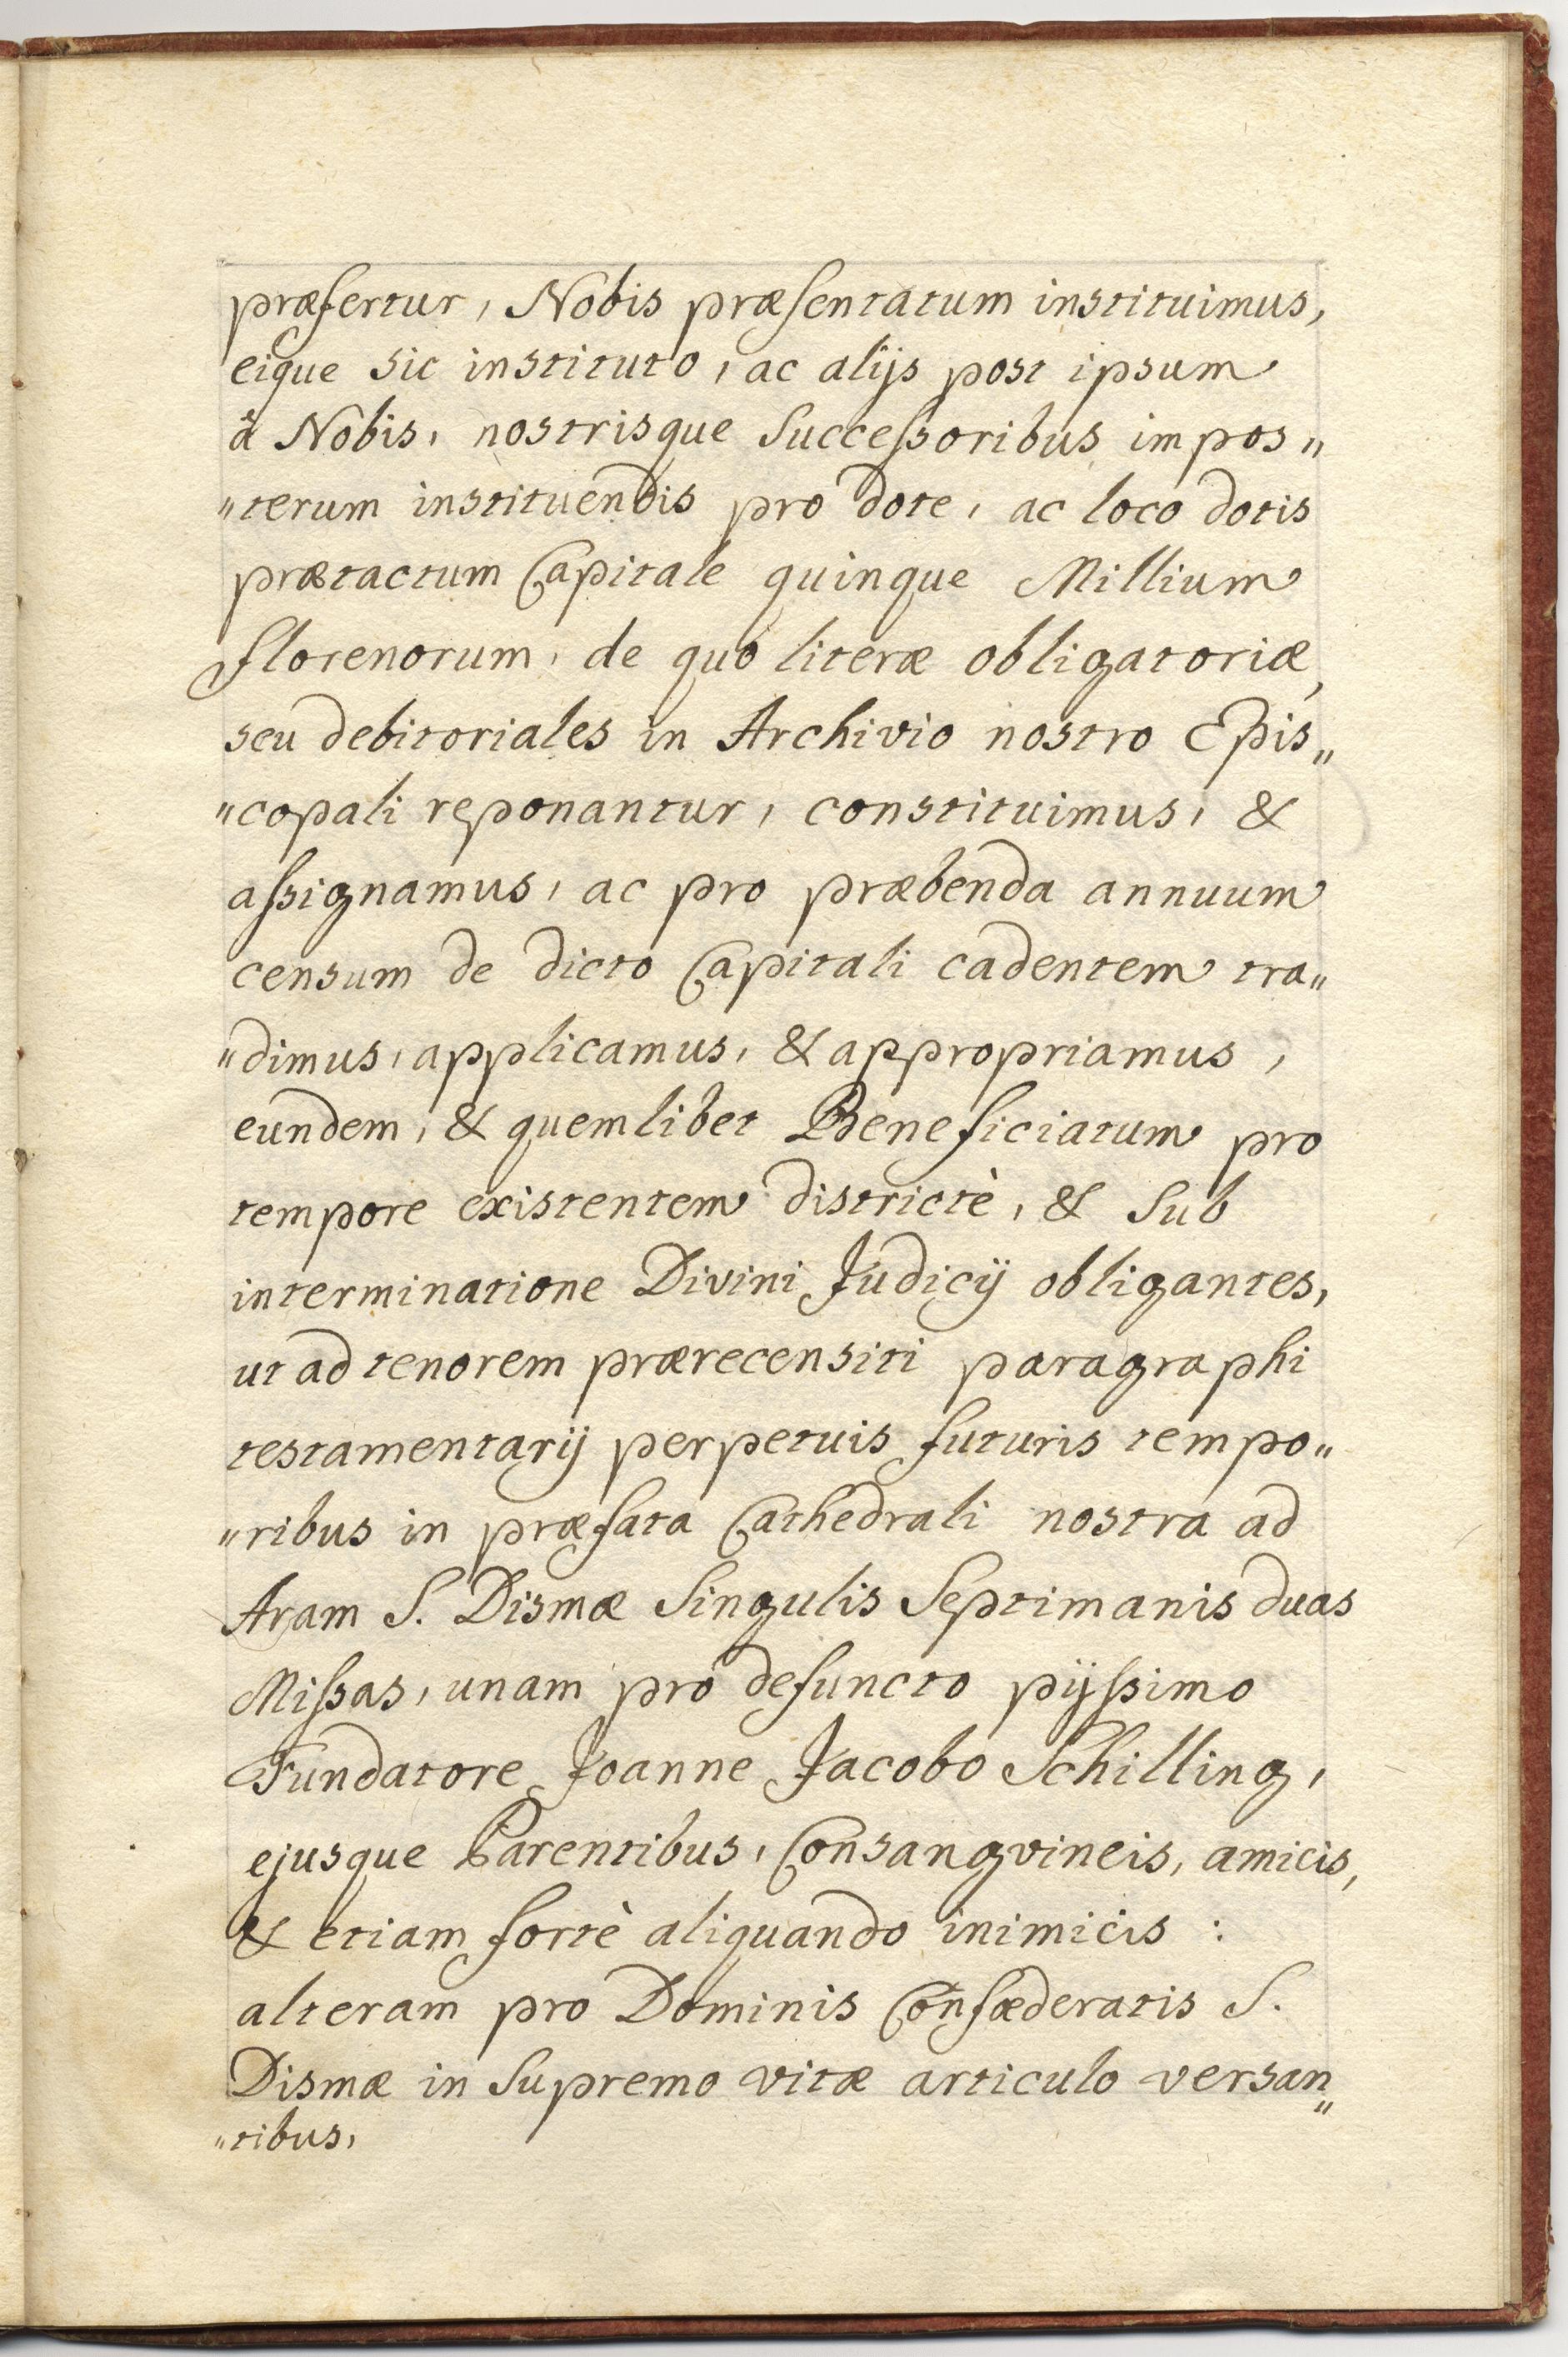 præfertur, Nobis præsentatum instituimus,
eique sic instituto, ac alijs post ipsum
à Nobis, nostrisque Successoribus impos„
„terum instituendis pro dote, ac loco dotis
prætactum Capitale quinque Millium
florenorum, de quo literæ obligatoriæ,
seu debitoriales in Archivio nostro Epis„
„copali reponantur, constituimus, &
assignamus, ac pro præbenda annuum
censum de dicto Capitali cadentem tra„
„dimus, applicamus, & appropriamus,
eundem, & quemlibet Beneficiatum pro
tempore existentem districtè, & sub
interminatione Divini Judicij obligantes,
ut ad tenorem prærecensiti paragraphi
testamentarij perpetuis futuris tempo„
„ribus in præfata Cathedrali nostra ad
Aram S. Dismæ Singulis Septimanis duas
Missas, unam pro defuncto pijssimo
Fundatore Joanne Jacobo Schilling,
ejusque Parentibus, Consangvineis, amicis,
& etiam fortè aliquando inimicis :
alteram pro Dominis Confæderatis S.
Dismæ in Supremo vitæ articulo versan„
„tibus,